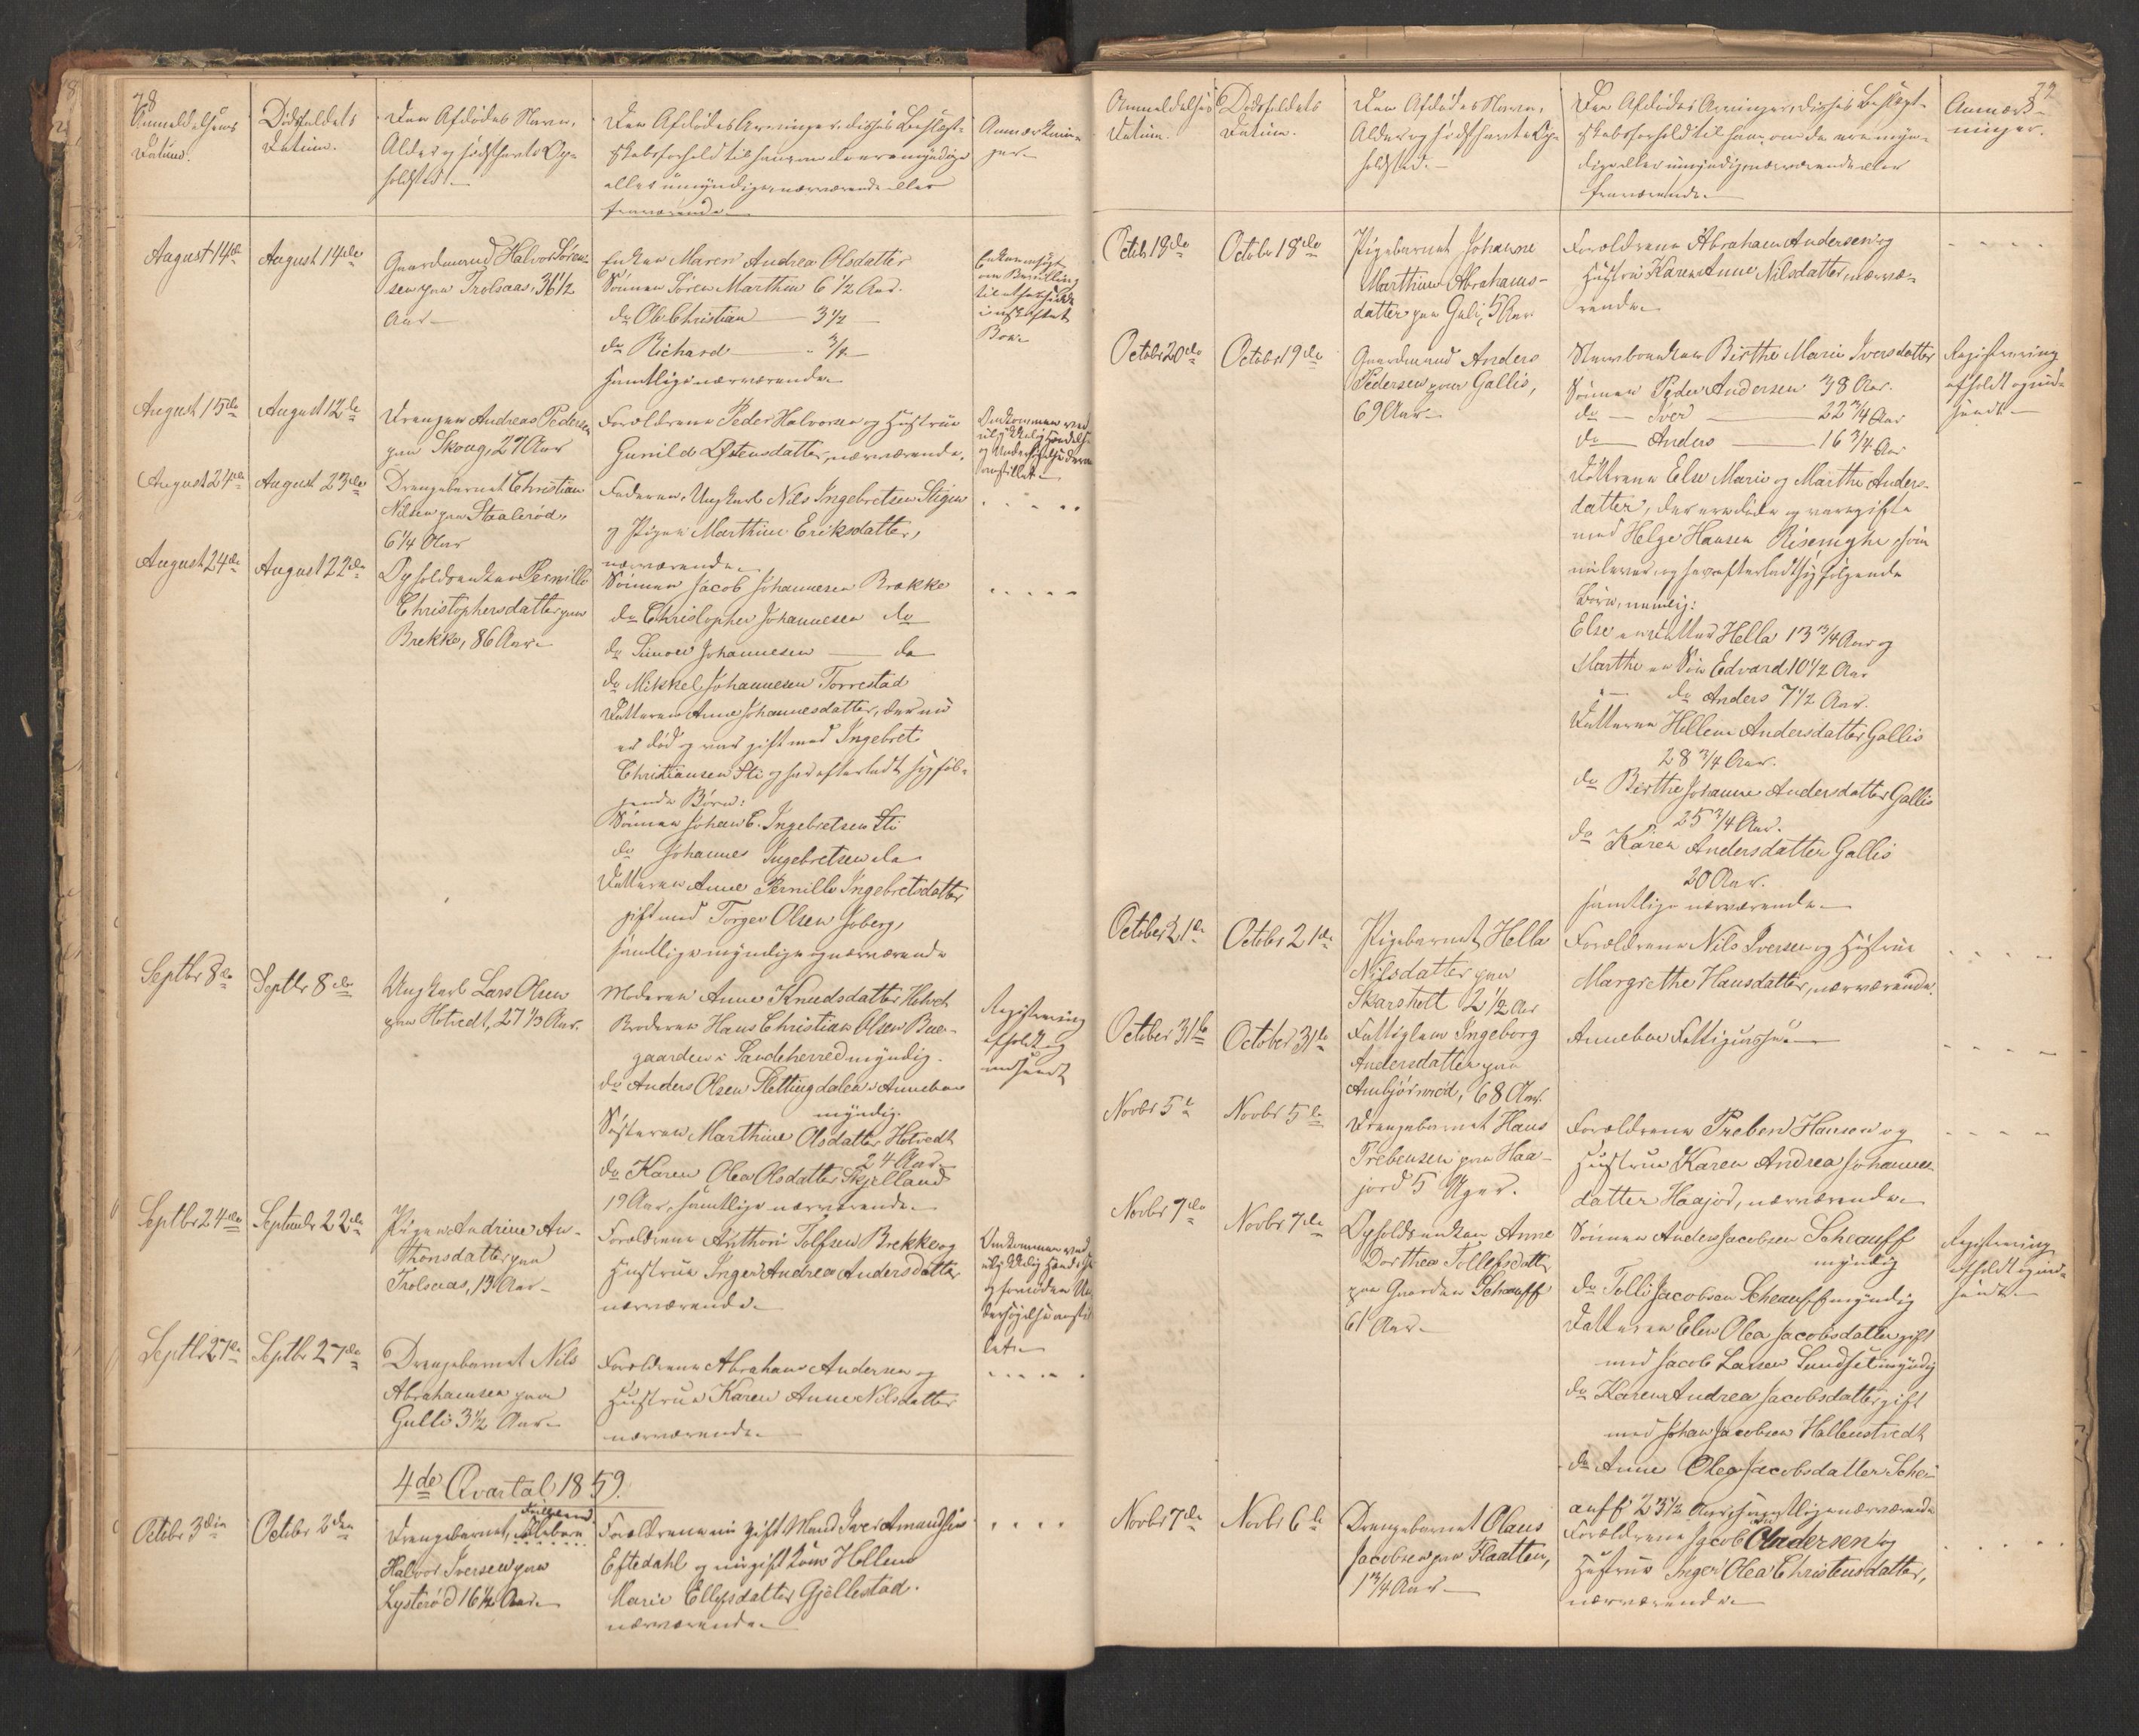 78
Anmeldelsens
Datum.
Dödsfaldets
Datum.
Den Afdödes Navn,
Alder og sidst havte Op-
holdsted.
Den Afdödes Arvinger, disses Beslægt-
skabsforhold til ham, om de ere myndige
eller umyndige, nærværende eller
fraværende.
Anmærknin-
ger.
August 14de
August 14de
Gaardmand Halvor Sören-
sen paa Trolsaas, 36 1/2
Aar
Enken Maren Andrea Olsdatter
Sönnen Sören Marthin 6 1/2 Aar.
do Ole Christian — 3 1/2 —
do Richard — 3/4 —
samtlige nærværende
Enken
om Bevilling
til at hensidde
i uskiftet
Boe
August 15de
August 12te
Drengen Andreas Pedersen
paa Skoug, 29 Aar
Forældrene Peder Halvorsen og Hustrue
Gunild Östensdatter, nærværende.
Omkommen ved
ulykkelig Hændelse
og Undersögelse derom
anstillet
August 24de
August 23de
Drengebarnet Christian
Nilsen paa Staaleröd,
6 1/4 Aar
Faderen, Ungkarl Nils Ingebretsen Stigen
og Pigen Marthine Eriksdatter,
nærværende
August 24de
August 22de
Opholdsenken Pernille
Christophersdatter paa
Brekke, 86 Aar
Sönnen Jacob Johannesen Brække
do Christopher Johannesen do
do Simon Johannesen — do
do Mikkel Johannesen Torrestad
Datteren Anne Johannesdatter, der nu
er död og var gift med Ingebret
Christiansen Sti og har efterladt sig föl-
gende Börn:
Sönnen Johan C. Ingebretsen Sti
do Johannes Ingebretsen do
Datteren Anne Pernille Ingebretsdatter
gift med Torger Olsen Soberg,
samtlige myndige og nærværende
Septbr 8de
Septbr 8de
Ungkarl Lars Olsen
paa Hotvedt, 27 1/3 Aar.
Moderen Anne Knudsdatter Hotvedt
Broderen Hans Christian Olsen Bue-
gaarden i Sandeherred myndig.
do Anders Olsen Slettingdalen i Annebou
myndig.
Sösteren Marthine Olsdatter Hotvedt
24 Aar.
do Karen Olea Olsdatter Skjelland
19 Aar, samtlige nærværende.
Registrering
afholdt og
indsendt
Septbr 24de
Septembr 22de
Pigen Andrine An-
thonsdatter paa
Trolsaas, 13 Aar
Forældrene Anthon Tolfsen Brekke og
Hustrue Inger Andrea Andersdatter
nærværende.
Omkommen ved
ulykkelig Hændelse
og fornöden Un-
dersögelse anstil-
let
Septbr 27de
Septbr 27de
Drengebarnet Nils
Abrahamsen paa
Gulli 3 1/2 Aar
Forældrene Abraham Andersen og
Hustrue Karen Anne Nilsdatter
nærværende.
4de Qvartal 1859.
Octbr 3die
October 2den
Drengebarnet,
Halvor Iversen paa
Lysteröd 16 1/2 Aar.
Forældrene nu gift Mand Iver Amundsen
Eftedahl og ugift Kone Hellene
Marie Ellefsdatter Gjellestad.
nærværende
Anmeldelses
Datum.
Dödsfaldets
Datum.
Den Afdödes Navn,
Alder og sidst havte Op-
holdsted.
Den Afdödes Arvinger, disses Beslægt-
skabsforhold til ham, om de ere myn-
dige eller umyndige, nærværende eller
fraværende.
Anmærk-
ninger.
Octob 18de
October 18de
Pigebarnet Johanne
Marthine Abrahams-
datter paa Guli, 5 Aar
Forældrene Abraham Andersen og
Hustru Karen Anne Nilsdatter, nærvæ-
rende.
Octobr 20de
October 19de
Gaardmand Anders
Pedersen paa Gallis,
69 Aar
Stervboenken Birthe Marie Iversdatter
Sönnen Peder Andersen 38 Aar.
do — Iver — 22 3/4 Aar
do — Anders — 16 3/4 Aar
Döttrene Else Marie og Marthe Anders-
datter, der ere döde og vare gifte
med Helge Hansen Risenighe som
nu lever, og har efterladt sig fölgende
Börn, nemlig:
Else en Datter Hella 13 3/4 Aar og
Marthe en Sön Edvard 10 1/2 Aar
do Anders 7 1/2 Aar.
Datteren Hellene Andersdatter Gallis
28 3/4 Aar.
do Birthe Johanne Andersdatter Gallis
25 3/4 Aar.
do Karen Andersdatter Gallis
20 Aar.
samtlige nærværende.
Registrering
afholdt og ind-
sendt
October 21de
October 21de
Pigebarnet Hella
Nilsdatter paa
Skarsholt 2 1/2 Aar
Forældrene Nils Iversen og Hustrue
Margrethe Hansdatter, nærværende.
October 31te
October 31te
Fattiglem Ingeborg
Andersdatter paa
Ambjörnröd, 68 Aar.
Annebou Fattigvæsen
Novbr 5te
Novbr 5te
Drengebarnet Hans
Prebensen paa Haa-
jord 5 Uger.
Forældrene Preben Hansen og
Hustrue Karen Andrea Johannes-
datter Haajod, nærværende.
Novbr 7de
Novbr 7de
Opholdsenken Anne
Dorthea Tollefsdatter
paa Gaarden Scheauff
61 Aar
Sönnen Anders Jacobsen Scheauff
myndig
do Tolli Jacobsen Scheauff myndig
Datteren Elen Olea Jacobsdatter gift
med Jacob Larsen Sundset myndig
do Karen Andrea Jacobsdatter gift
med Johan Jacobsen Hallenstvedt
do Anne Olea Jacobsdatter Sche-
auff 23 1/2 Aar, samtlige nærværende
Registrering
afholdt og ind-
sendt
Novbr 7de
Novbr 6te
Drengebarnet Olaus
Jacobsen paa Flaatten,
1 3/4 Aar
Forældrene Jacob Andersen og
Hustrue Inger Olea Christensdatter,
nærværende